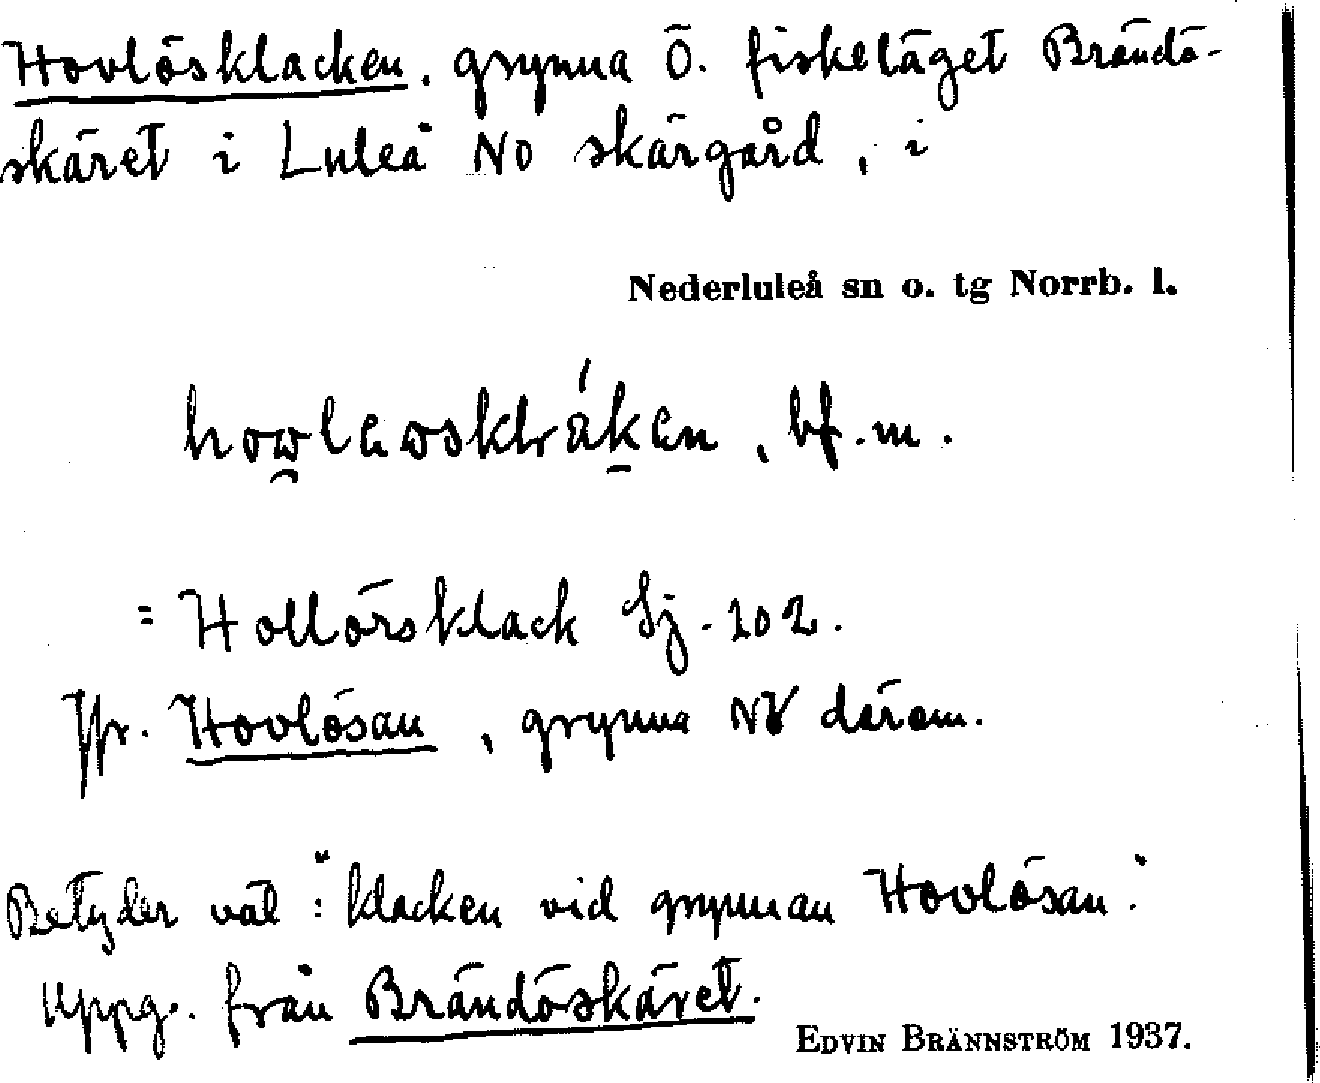 Hovlösklacken, grynna Ö. fiskeläget Brändö-
skäret i Luleå NO skärgård, i
Nederluleå sn o. tg Norrb. l.
bf. m.
= Hollörsklack Sj. 102.
Jfr. Hovlösan, grynna NV därom.
Betyder väl: "klacken vid grynnan Hovlösan".
Uppg. från Brändöskäret.
EDVIN BRÄNNSTRÖM 1937.